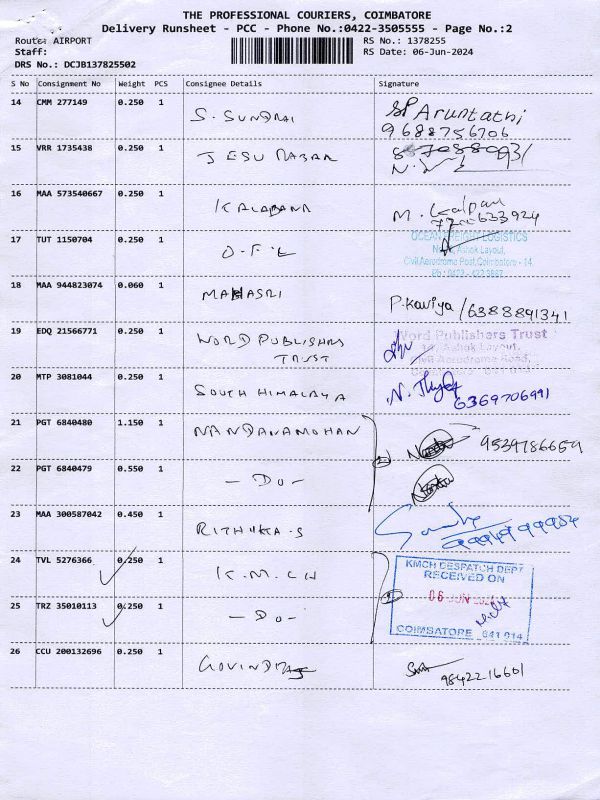 THE PROFESSIONAL COURIERS, COIMBATORE
Delivery Runsheet - PCC - Phone No.:0422-3505555 - Page No.:2
Route: AIRPORT
RS No.: 1378255
Staff:
RS Date: 06-Jun-2024
DRS No.: DCJB137825502
S No Consignment No Weight PCS Consignee Details Signature
14 CMM 277149 0.250 1 S. SUNDRAI SP Aruntathi
9688756706
15 VRR 1735438 0.250 1 JESU
16 MAA 573540667 0.250 1 KALABANA M. Kalpan
633924
17 TUT 1150704 0.250 1 O.F.L
OCEAN FREIGHT LOGISTICS
Ashok Layout,
Civil Aerodrome Post, Coimbatore - 14
Ph : 0422 -
18 MAA 944823074 0.060 1 MAHASRI P.Kaviya/6388891341
19 EDQ 21566771 0.250 1 WORD PUBLISHRS
TRUST
Word Publishers Trust
Ashok Layout,
Civil Aerodrome Road,
20 MTP 3081044 0.250 1 SOUTH HIMALAYA N.
6369706991
21 PGT 6840480 1.150 1 NANDANAMOHAN 9539786659
22 PGT 6840479 0.550 1 - Do -
23 MAA 300587042 0.450 1 RITHIKA-S
24 TVL 5276366 0.250 1 K.M.C.H
KMCH DESPATCH DEPT
RECEIVED ON
06 JUN
COIMBATORE - 641 014
25 TRZ 35010113 0.250 1 - Do -
26 CCU 200132696 0.250 1 9842216601